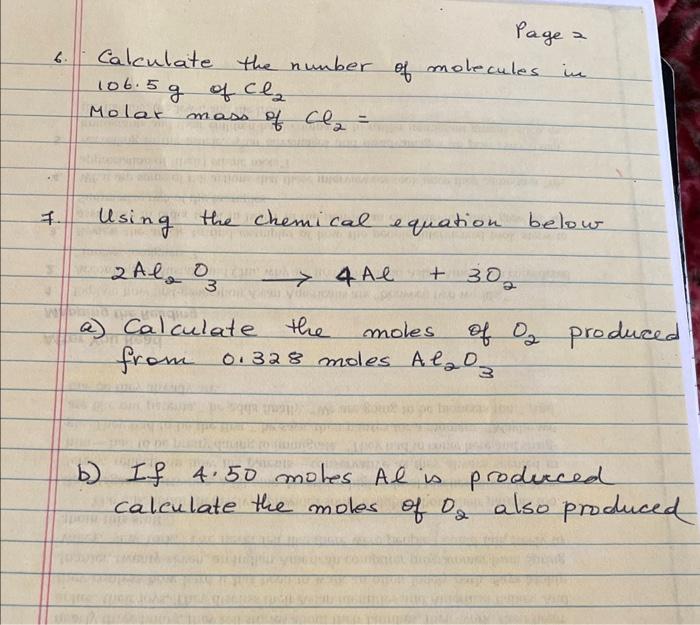 Page 2
6. Calculate the number of molecules in
106.5 g of Cl₂
Molar mass of Cl₂ =
7. Using the chemical equation below
2Al₂O₃ → 4Al + 3O₂
a) Calculate the moles of O₂ produced
from 0.328 moles Al₂O₃
b) If 4.50 moles Al is produced
calculate the moles of O₂ also produced